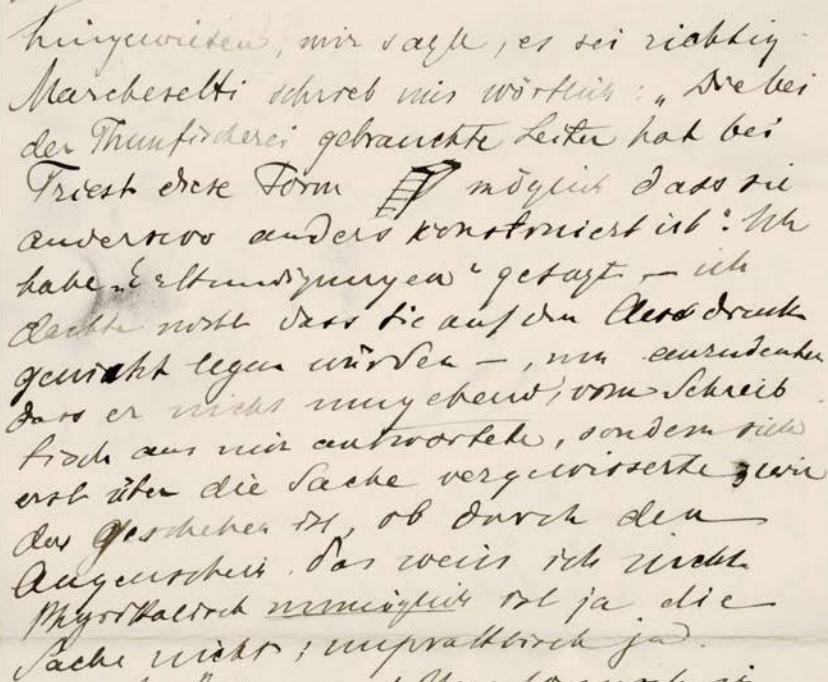 hingewiesen, mir sagte, es sei richtig
Marcheselti schrieb mir wörtlich: „Die bei
der Thunfischerei gebrauchte Leiter hat bei
Triest diese Form möglich dass sie
anderswo anders konstruiert ist“. Ich
habe „Erkundigungen“ gesagt – ich
dachte nicht dass Sie auf den Ausdruck
gewicht legen würden –, um anzudeuten
dass er nicht umgehend, vom Schreib
tisch aus mir antwortete, sondern sich
erst über die Sache vergewisserte, wie
das geschehen ist, ob durch den
Augenschein das weiss ich nicht.
Physikalisch unmöglich ist ja die
Sache nicht; unpraktisch ja.